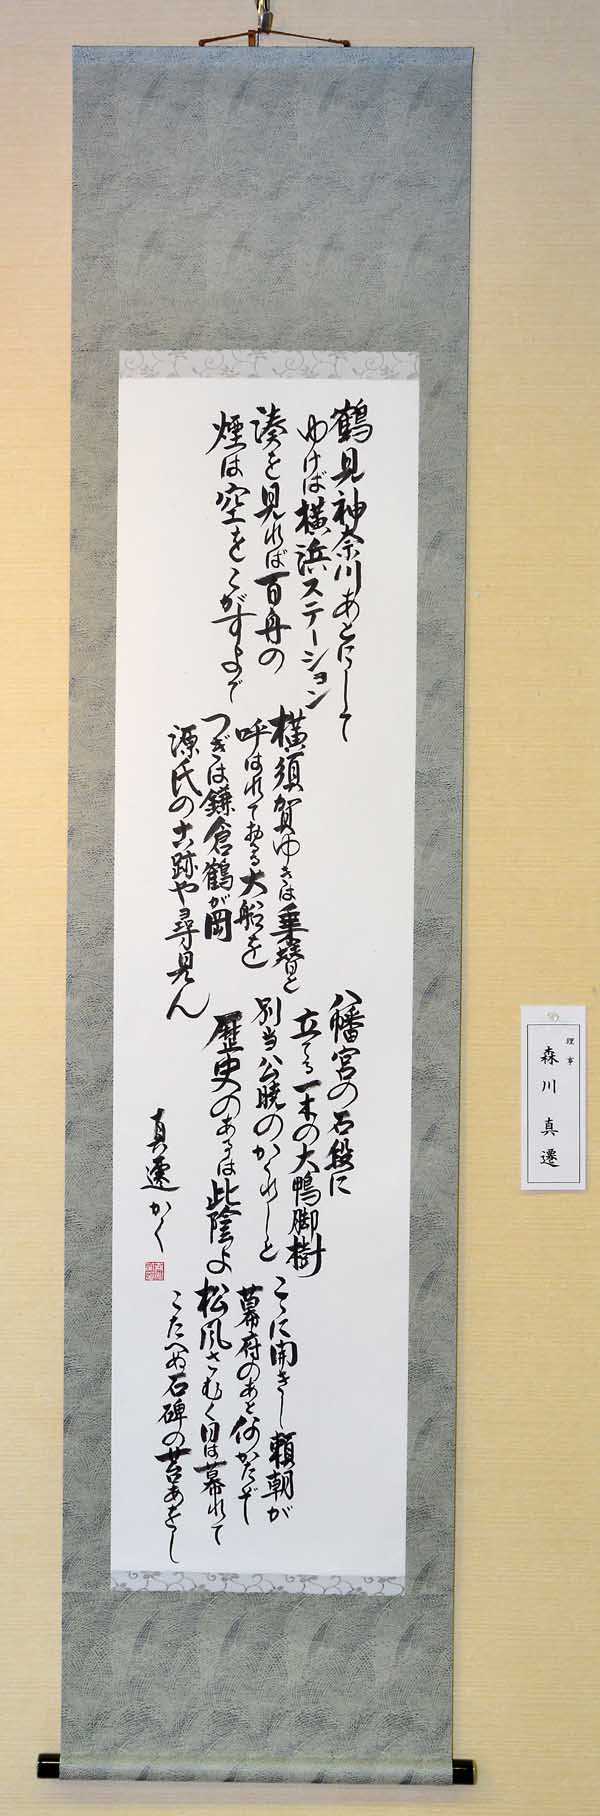 鶴見神奈川あとにして
ゆけば横浜ステーション
湊を見れば百舟の
煙は空をこがすまで
横須賀ゆきは乗替と
呼ばれておる大船を
つぎは鎌倉鶴が岡
源氏の古跡や尋見ん
八幡宮の石段に
立てる一木の大鴨脚樹
別当公暁のかくれしと
歴史のあるは此陰よ
こゝに開きし頼朝が
幕府のあと何かたぞ
松風さむく日は暮れて
こたへぬ石碑の苔あをし
真遷かく
理事
森川真遷